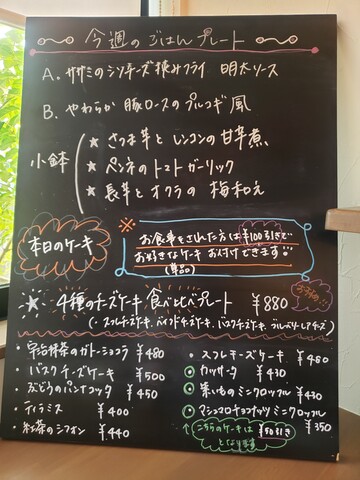 今週のごはんプレート
A. ササミのシソチーズ挟みフライ 明太ソース
B. やわらか 豚ロースのプルコギ風
小鉢
★ さつま芋とレンコンの甘辛煮
★ ペンネのトマトガーリック
★ 長芋とオクラの梅和え
本日のケーキ
※ お食事をされた方は¥100引きで
お好きなケーキお付けできます!!
(単品)
★ 4種のチーズケーキ 食べ比べプレート ¥880
(・スフレチーズケーキ、ベイクドチーズケーキ、バスクチーズケーキ、ブルーベリーレアチーズ)
・宇治抹茶のガトーショコラ ¥480
・バスクチーズケーキ ¥500
・ぶどうのパンナコッタ ¥450
・ティラミス ¥400
・紅茶のシフォン ¥440
・スフレチーズケーキ ¥480
カッサータ ¥430
紫いものミニロール ¥430
マシュマロチョコナッツミニロール ¥350
↑こちらのケーキは ¥50引き
となります